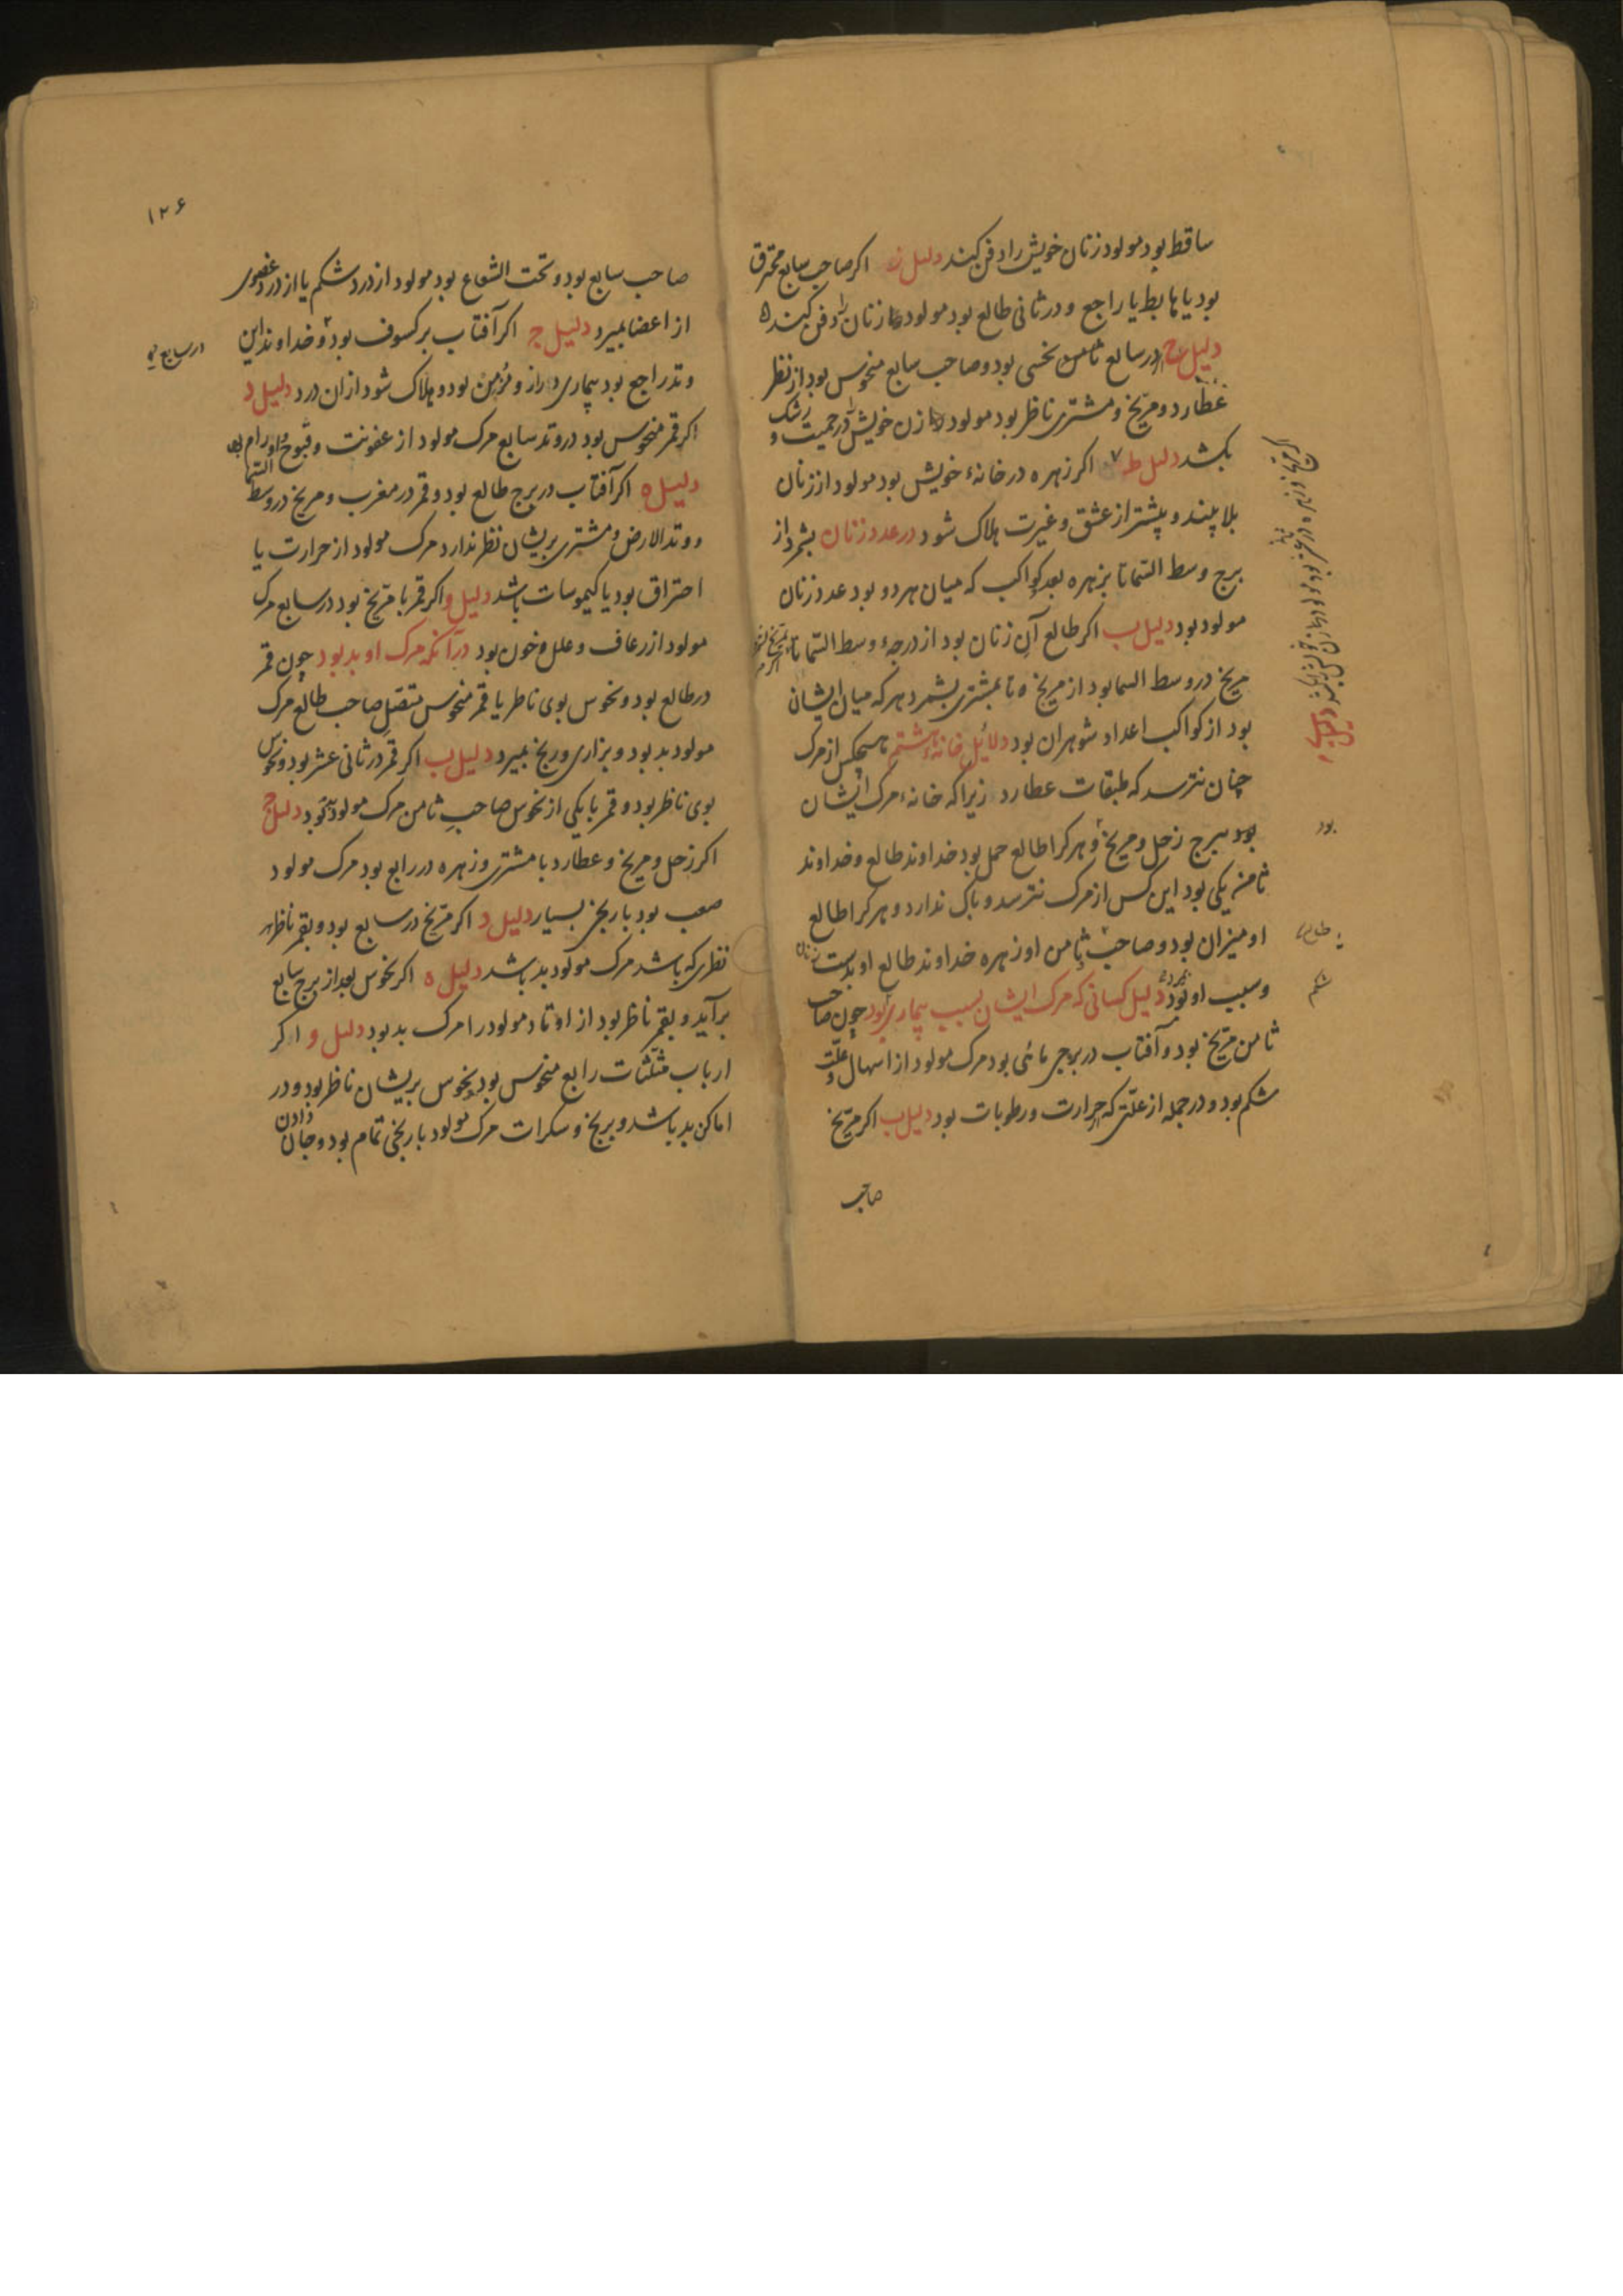 ساقط بود مولود زنان خویش را دفن کند دلیل ز اکر صاحب سابع محترق
بود یا هابط یا راجع و در ثانی طالع بود مولود زنان را دفن کند
دلیل ح در سابع نحسی بود و صاحب سابع منحوس بود از نظر
عطارد و مریخ و مشتری ناظر بود مولود زن خویش را در حمیت و رشک
بکشد دلیل ط اکر زهره در خانهٔ خویش بود مولود از زنان
بلا بیند و بیشتر از عشق و غیرت هلاک شود در عدد زنان بشمر از
برج وسط السما تا بزهره بعد کواکب که میان هر دو بود عدد زنان
مولود بود دلیل ب اکر طالع آن زنان بود از درجهٔ وسط السما تا
مریخ در وسط السما بود از مریخ تا بمشتری بشمرد هر که میان ایشان
بود از کواکب اعداد شوهران بود دلائل خانهٔ هشتم هیچکس از مرک
چنان نترسد که طبقات عطارد زیرا که خانهٔ مرک ایشان
بود ببرج زحل و مریخ و هر کرا طالع حمل بود خداوند طالع و خداوند
ثامنه یکی بود این کس از مرک نترسد و باک ندارد و هر کرا طالع
او میزان بود و صاحب ثامن او زهره خداوند طالع او بدست زنان
و سبب او بود دلیل کسانی که مرک ایشان بسبب بیماری بود چون صاحب
ثامن مریخ بود و آفتاب در برجی مائی بود مرک مولود از اسهال و علت
شکم بود و در جمله از علتی که حرارت و رطوبات بود دلیل ب اکر مریخ
صاحب
بود
شکم
۱۲۶
صاحب سابع بود و تحت الشعاع بود مولود از درد شکم یا از درد عضوی
از اعضا بمیرد دلیل ج اکر آفتاب بر کسوف بود و خداوند این
در سابع
وتد راجع بود بیماری دراز و مزمن بود و هلاک شود از ان درد دلیل د
اکر قمر منحوس بود در وتد سابع مرک مولود از عفونت و قیوح و اورام بود
دلیل ه اکر آفتاب در برج طالع بود و قمر در مغرب و مریخ در وسط السما
و وتد الارض و مشتری بریشان نظر ندارد مرک مولود از حرارت یا
احتراق بود یا کیموسات باشد دلیل و اکر قمر با مریخ بود در سابع مرک
مولود از رعاف و علل و خون بود در آنکه مرک او بد بود چون قمر
در طالع بود و نحوس بوی ناظر یا قمر منحوس متصل صاحب طالع مرک
مولود بد بود و بزاری و رنج بمیرد دلیل ب اکر قمر در ثانی عشر بود و نحوس
بوی ناظر بود و قمر با یکی از نحوس صاحب ثامن مرک مولود بد بود دلیل ج
اکر زحل و مریخ و عطارد با مشتری و زهره در رابع بود مرک مولود
صعب بود با رنج بسیار دلیل د اکر مریخ در سابع بود و بقمر ناظر
نظری که باشد مرک مولود بد باشد دلیل ه اکر نحوس بعد از برج سابع
برآید و بقمر ناظر بود از اوتاد مولود را مرک بد بود دلیل و اکر
ارباب مثلثات رابع منحوس بود و نحوس بریشان ناظر بود و در
اماکن بد باشد و برنج و سکرات مرک مولود با رنجی تمام بود و جان دادن